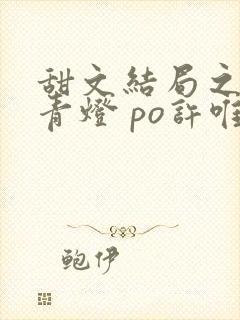 甜文結局之
青燈 po許唯
鲍伊